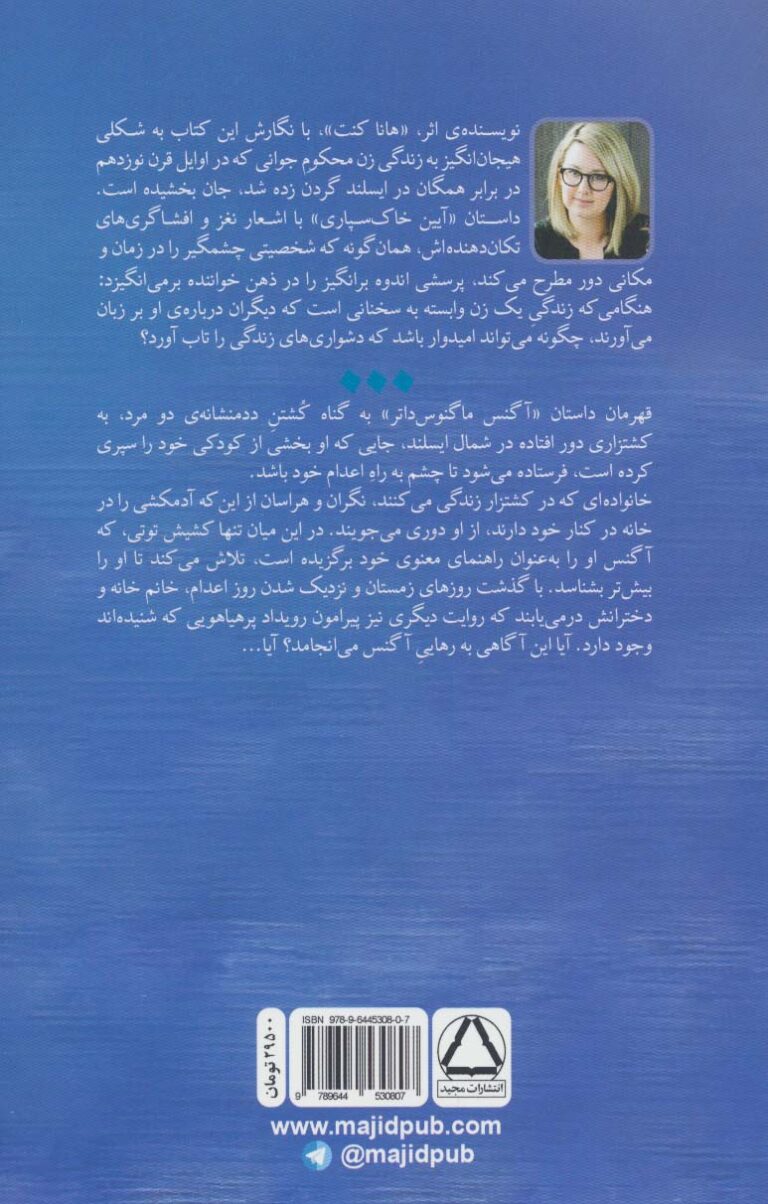 نویسنده‌ی اثر، «هانا کنت»، با نگارش این کتاب به شکلی
هیجان‌انگیز به زندگی زن محکومِ جوانی که در اوایل قرن نوزدهم
در برابر همگان در ایسلند گردن زده شد، جان بخشیده است.
داستان «آیین خاک‌سپاری» با اشعار نغز و افشاگری‌های
تکان‌دهنده‌اش، همان‌گونه که شخصیتی چشمگیر را در زمان و
مکانی دور مطرح می‌کند، پرسشی اندوه برانگیز را در ذهن خواننده برمی‌انگیزد:
هنگامی‌که زندگیِ یک زن وابسته به سخنانی است که دیگران درباره‌ی او بر زبان
می‌آورند، چگونه می‌تواند امیدوار باشد که دشواری‌های زندگی را تاب آورد؟
قهرمان داستان «آگنس ماگنوس‌داتر» به گناه کُشتنِ ددمنشانه‌ی دو مرد، به
کشتزاری دور افتاده در شمال ایسلند، جایی که او بخشی از کودکی خود را سپری
کرده است، فرستاده می‌شود تا چشم به راهِ اعدام خود باشد.
خانواده‌ای که در کشتزار زندگی می‌کنند، نگران و هراسان از این‌که آدمکشی را در
خانه در کنار خود دارند، از او دوری می‌جویند. در این میان تنها کشیش توتی، که
آگنس او را به‌عنوان راهنمای معنوی خود برگزیده است، تلاش می‌کند تا او را
بیش‌تر بشناسد. با گذشت روزهای زمستان و نزدیک شدن روز اعدام، خانم خانه و
دخترانش درمی‌یابند که روایت دیگری نیز پیرامون رویداد پرهیاهویی که شنیده‌اند
وجود دارد. آیا این آگاهی به رهاییِ آگنس می‌انجامد؟ آیا...
ISBN 978-9-6445308-0-7
9 789644 530807
۲۹۵۰۰ تومان
انتشارات مجید
www.majidpub.com
@majidpub